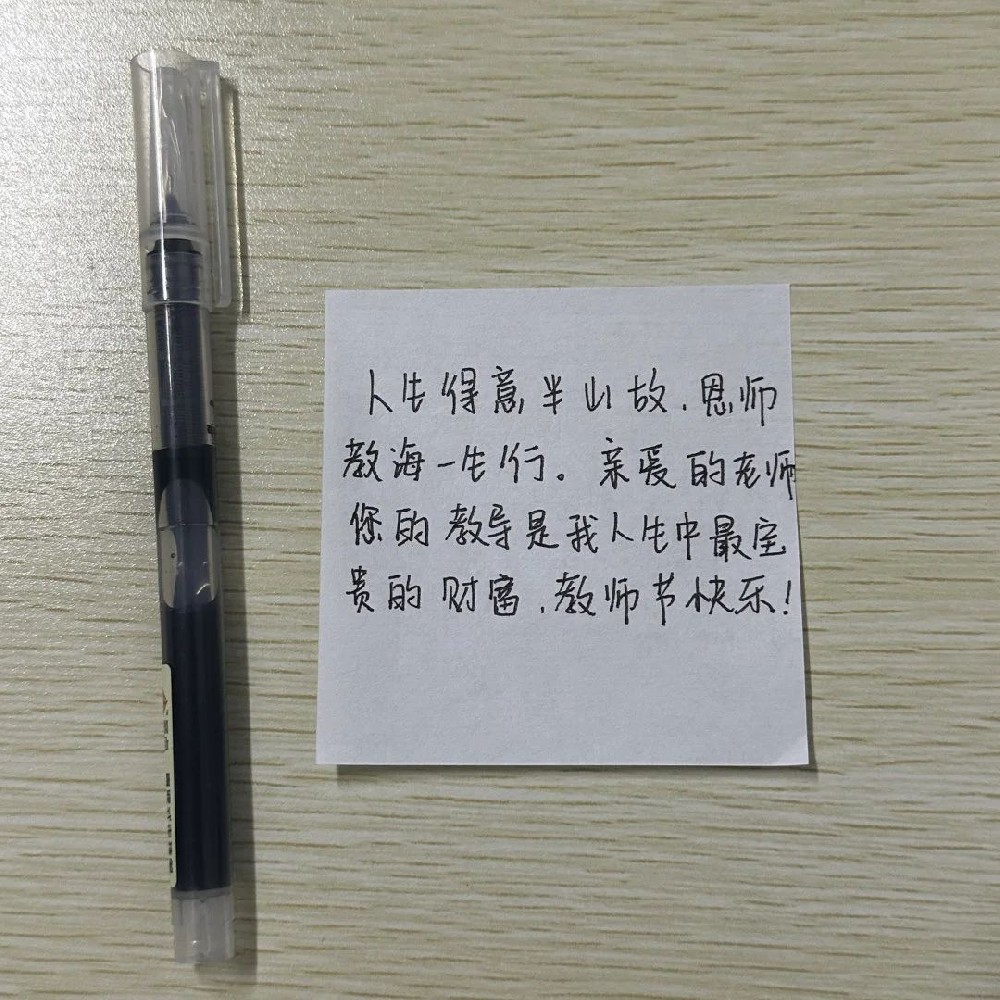 人生得意半山故，恩师
教海一生行。亲爱的老师
您的教导是我人生中最宝
贵的财富，教师节快乐！